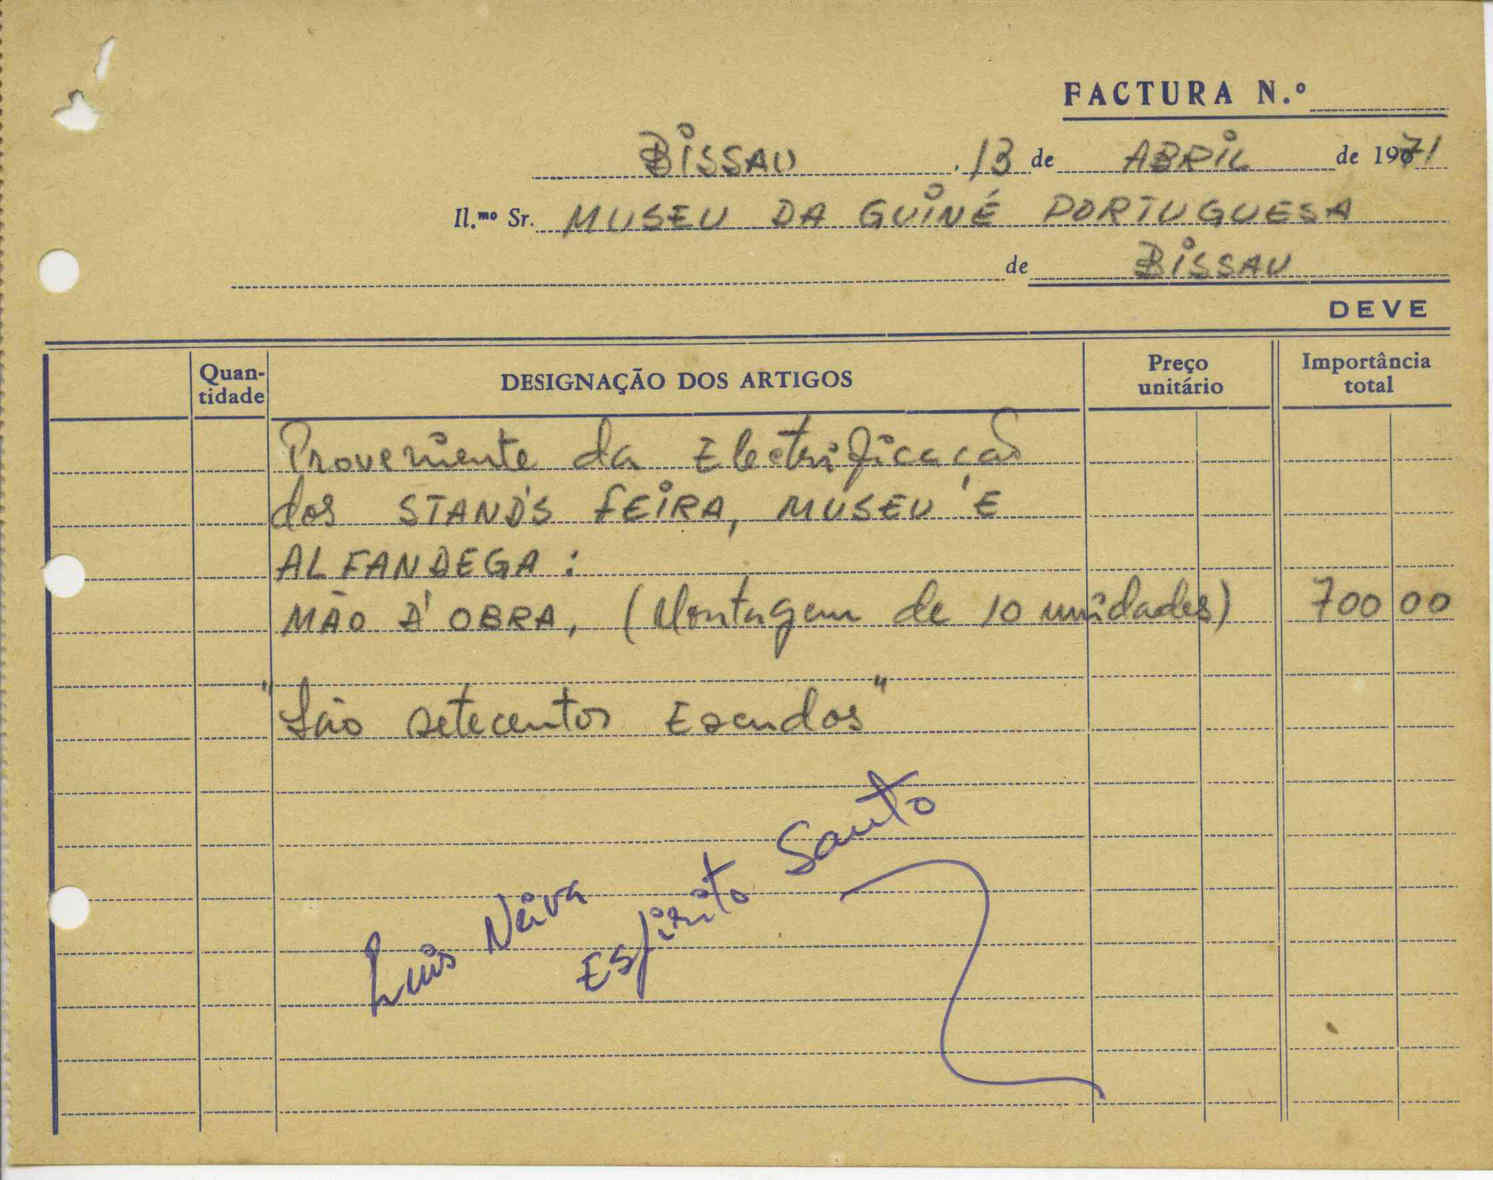 FACTURA N.º
BISSAU, 13 de ABRIL de 1971
Il.mo Sr. MUSEU DA GUINÉ PORTUGUESA
de BISSAU
DEVE
Quan-tidade DESIGNAÇÃO DOS ARTIGOS Preço unitário Importância total
Proveniente da Electrificação
dos STAND'S FEIRA, MUSEU E
ALFANDEGA:
MÃO D'OBRA, (Montagem de 10 unidades) 700 00
"São setecentos Escudos"
Luis Neiva Espirito Santo